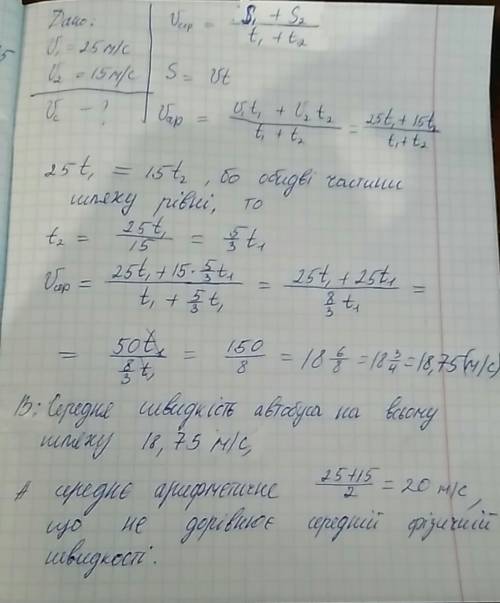 Дано:
V₁ = 25 м/с
V₂ = 15 м/с
Vc - ?
Vсер = (S₁ + S₂)/(t₁ + t₂)
S = Vt
Vсер = (V₁t₁ + V₂t₂)/(t₁ + t₂) = (25t₁ + 15t₂)/(t₁ + t₂)
25t₁ = 15t₂, бо обидві частини
шляху рівні, то
t₂ = 25t₁/15 = 5/3 t₁
Vсер = (25t₁ + 15 · 5/3 t₁)/(t₁ + 5/3 t₁) = (25t₁ + 25t₁)/(8/3 t₁) =
= 50t₁/(8/3 t₁) = 150/8 = 18 6/8 = 18 3/4 = 18,75 (м/с)
В: Середня швидкість автобуса на всьому
шляху 18,75 м/с,
А середнє арифметичне (25+15)/2 = 20 м/с,
що не дорівнює середній фізичній
швидкості.